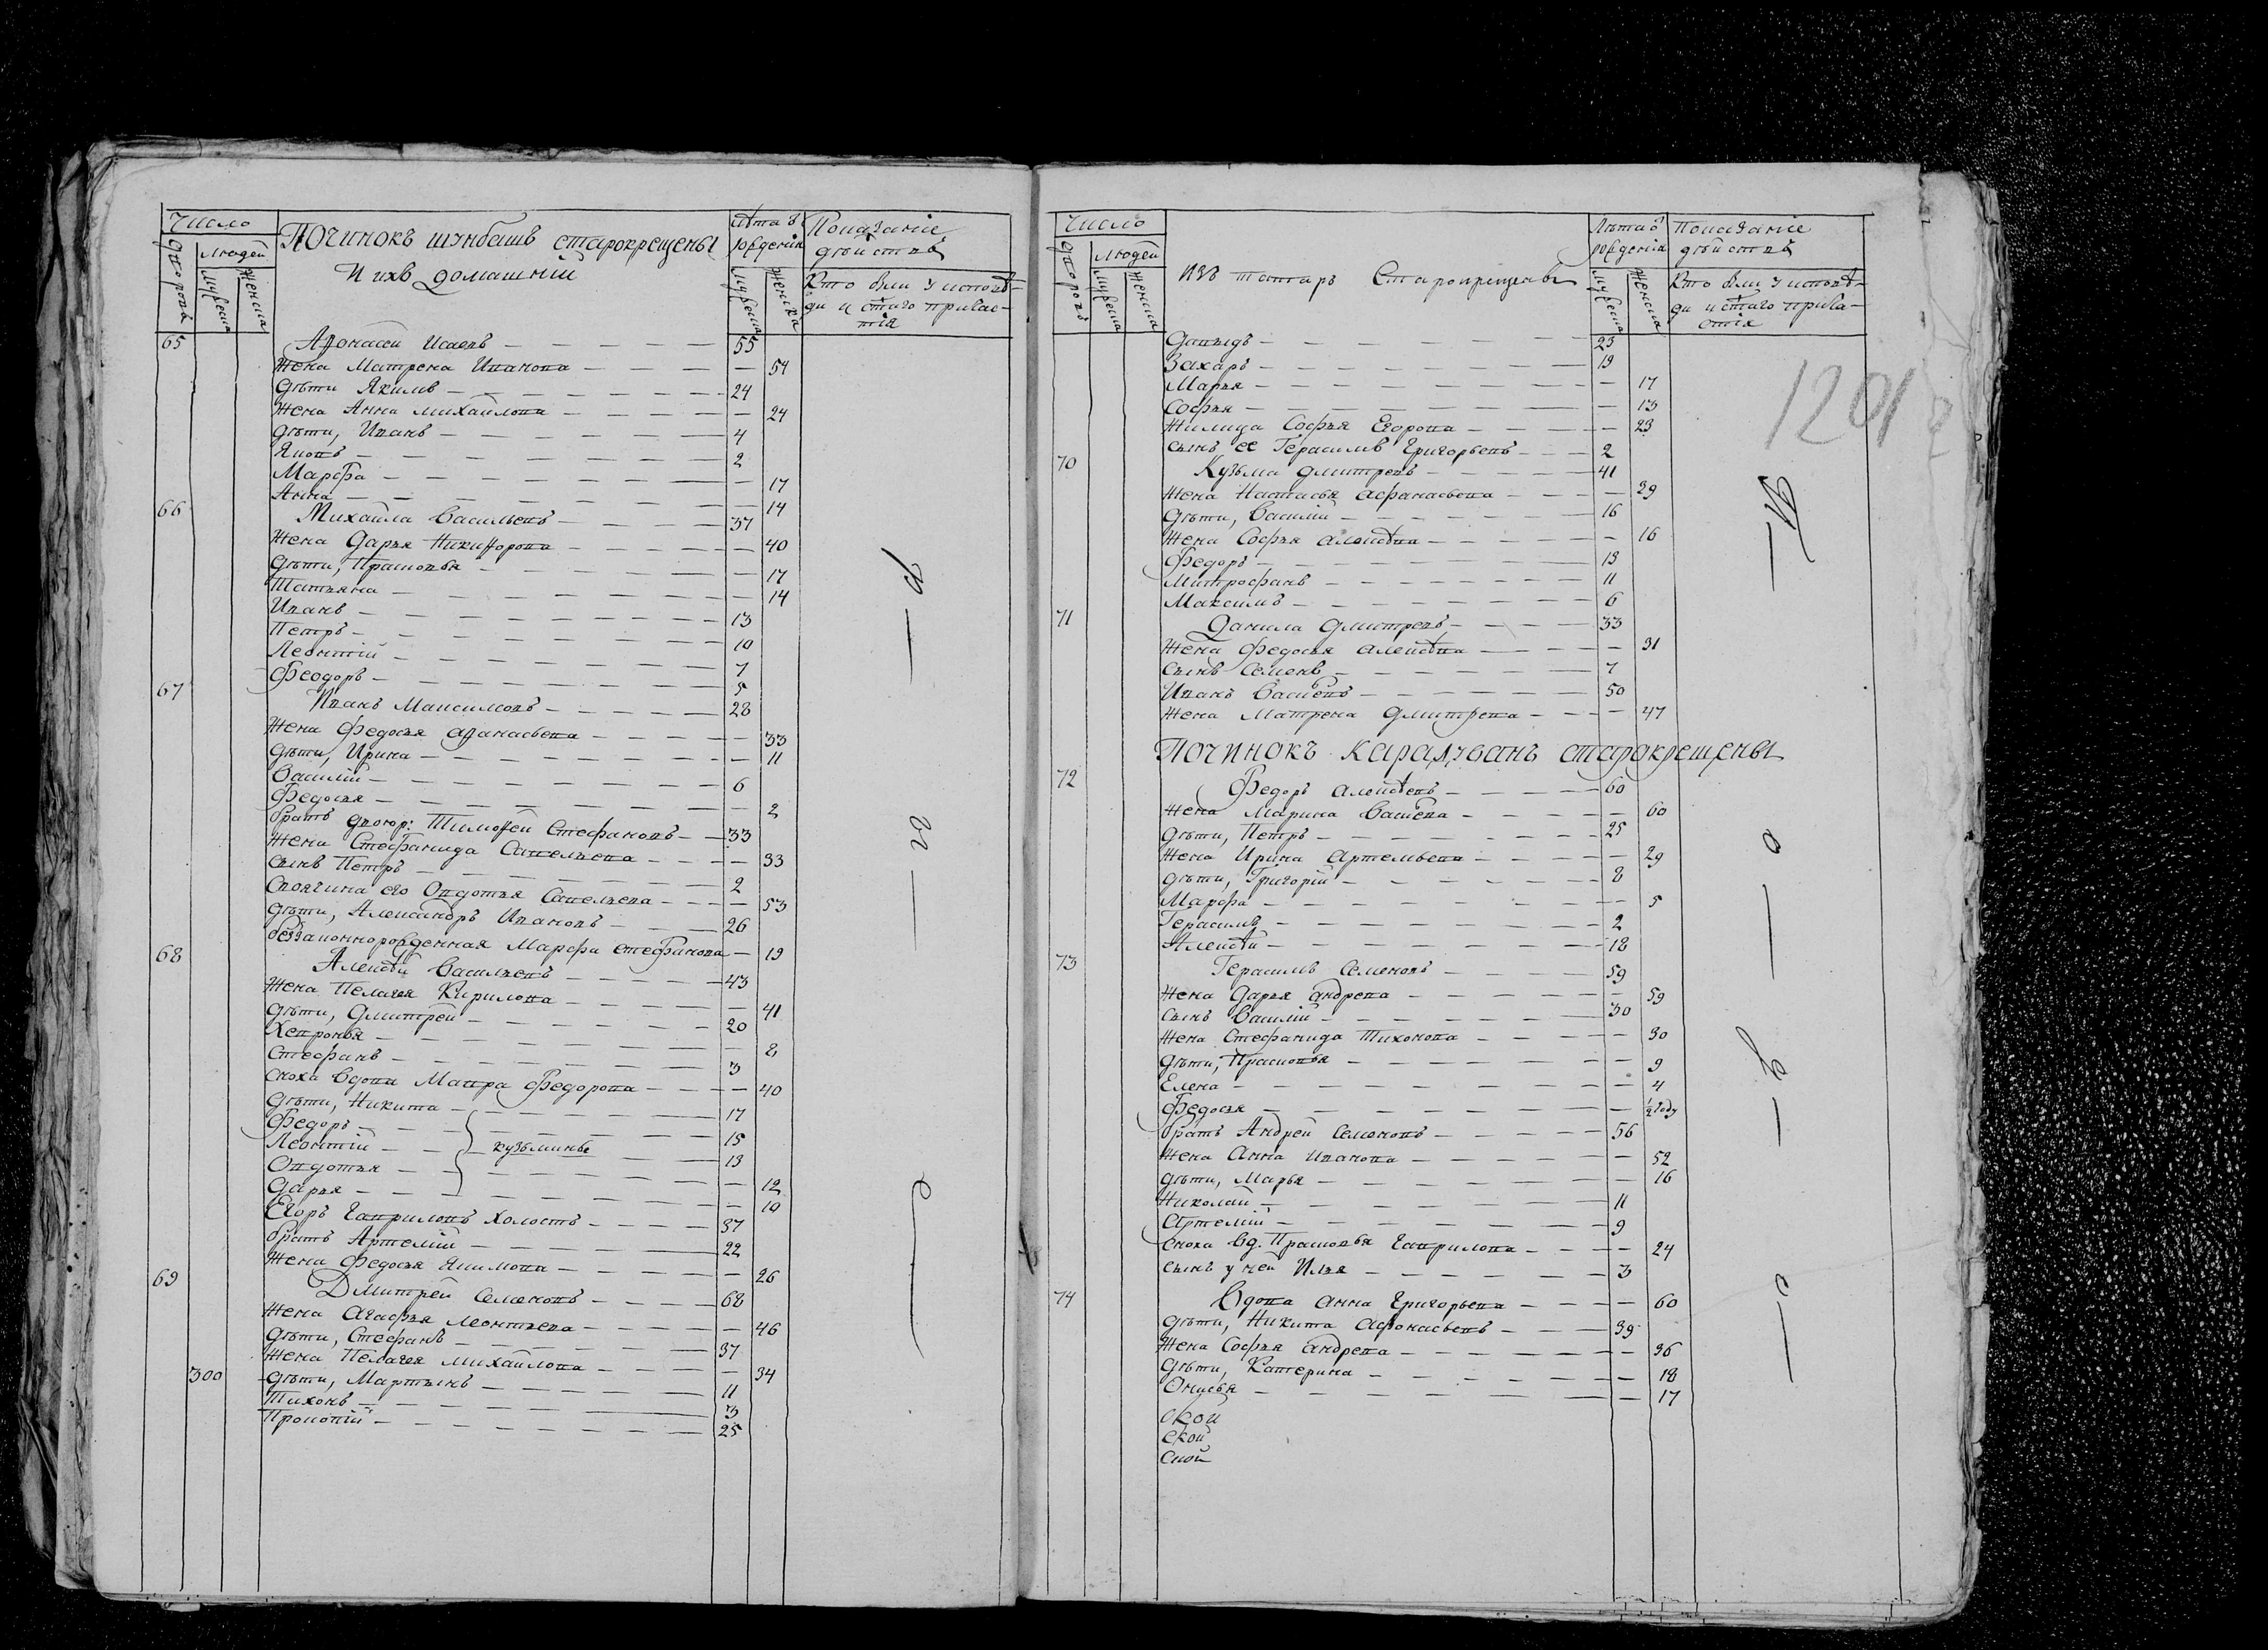 Число
дворовъ
людей
мужеска
женска
Починокъ шунбашъ старокрещены
и ихъ домашніи
Лѣта ѿ
рожденія
мужеска
женска
Показаніе
дѣйствъ
Кто были у исповѣ-
ди и стаго причас-
тія
65 Афонасей Исаевъ — 55
Жена Матрена Иванова — 54
Дѣти Якимъ — 24
Жена Анна Михайлова — 24
Дѣти, Иванъ — 4
Яковъ — 2
Марфа — 17
Анна — 14
66 Михайла Васильевъ — 37
Жена Дарья Никифорова — 40
Дѣти, Прасковья — 17
Татьяна — 14
Иванъ — 13
Петръ — 10
Леонтій — 7
Феодоръ — 5
67 Иванъ Максимовъ — 28
Жена Федосья Афанасьева — 33
Дѣти, Ирина — 11
Василій — 6
Федосья — 2
братъ двоюр: Тимофей Стефановъ — 33
Жена Стефанида Савельева — 33
сынъ Петръ — 2
Своячина его Овдотья Савельева — 53
Дѣти, Александръ Ивановъ — 26
беззаконнорожденная Марфа Стефанова — 19
68 Алексѣй Васильевъ — 43
Жена Пелагея Кирилова — 41
Дѣти, Дмитрей — 20
Хевронья — 8
Стефанъ — 3
сноха вдова Мавра Федорова — 40
Дѣти, Никита — 17
Федоръ — 15
Леонтій — кузьмины — 13
Овдотья — 12
Дарья — 10
Егоръ Гавриловъ холостъ — 37
братъ Артемій — 22
Жена Федосья Якимова — 26
69 Дмитрей Семеновъ — 68
Жена Агафья Леонтьева — 46
Дѣти, Стефанъ — 37
Жена Пелагея Михайлова — 34
300 Дѣти, Мартынъ — 11
Тихонъ — 3
Прокопій — 25
Число
дворовъ
людей
мужеска
женска
Изъ татаръ Старокрещены
Лѣта ѿ
рожденія
мужеска
женска
Показаніе
дѣйствъ
Кто были у исповѣ-
ди и стаго прича-
стія
1201
Давыдъ — 23
Захаръ — 19
Марья — 17
Софья — 13
Жилица Софья Егорова — 23
сынъ ее Герасимъ Григорьевъ — 2
70 Кузьма Дмитревъ — 41
Жена Настасья Афанасьева — 39
Дѣти, Василій — 16
Жена Софья Алексѣва — 16
Федоръ — 13
Митрофанъ — 11
Максимъ — 6
71 Данила Дмитревъ — 33
Жена Федосья Алексѣва — 31
сынъ Семенъ — 7
Иванъ Васиевъ — 50
Жена Матрена Дмитрева — 47
Починокъ Карадуванъ старокрещены
72 Федоръ Алексѣевъ — 60
Жена Марина Васиева — 60
Дѣти, Петръ — 25
Жена Ирина Артемьева — 29
Дѣти, Григорій — 8
Марфа — 5
Герасимъ — 2
Алексѣй — 18
73 Герасимъ Семеновъ — 59
Жена Дарья Андрева — 59
сынъ Василій — 30
Жена Стефанида Тихонова — 30
Дѣти, Прасковья — 9
Елена — 4
Федосья — 1/2 году
братъ Андрей Семеновъ — 56
Жена Анна Иванова — 52
Дѣти, Марья — 16
Николай — 11
Артемій — 9
сноха вд. Прасковья Гаврилова — 24
сынъ у ней Илья — 3
74 Вдова Анна Григорьева — 60
Дѣти, Никита Афонасьевъ — 39
Жена Софья Андрева — 36
Дѣти, Катерина — 18
Онисья — 17
ской
ской
ской